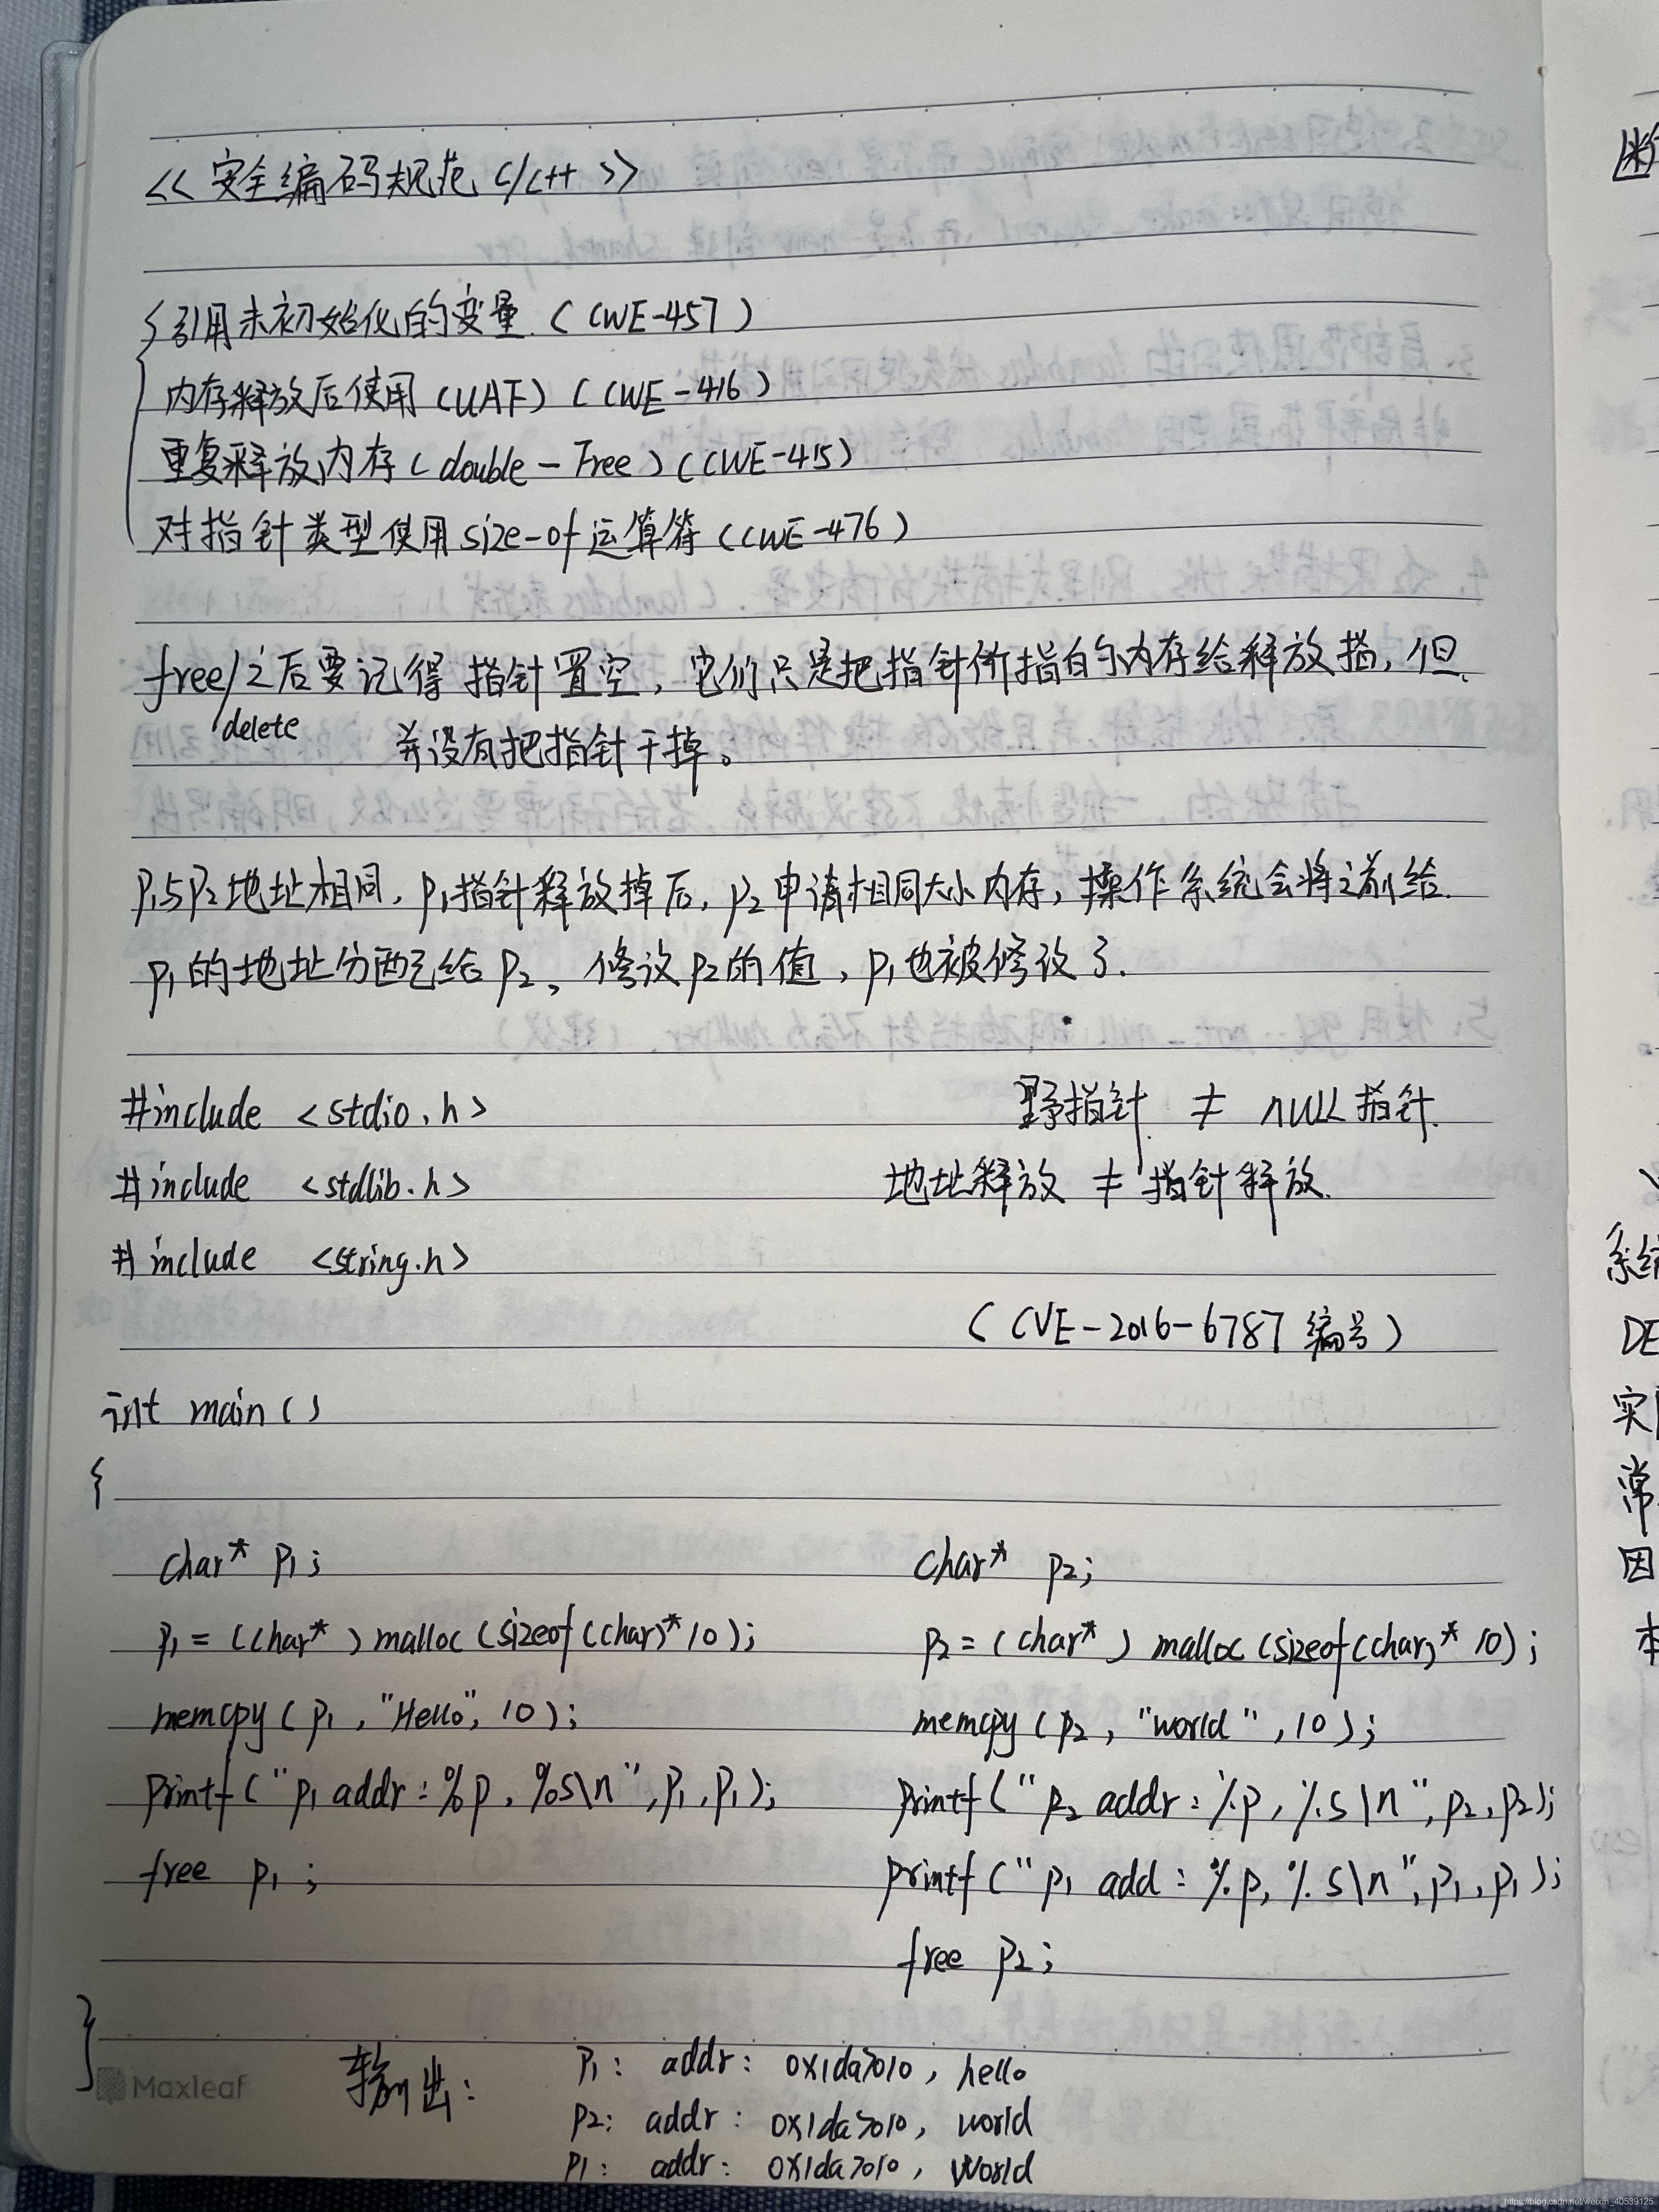 << 安全编码规范 C/C++ >>
引用未初始化的变量. (CWE-457)
内存释放后使用 (UAF) (CWE-416)
重复释放内存 (double-Free) (CWE-415)
对指针类型使用size-of运算符 (CWE-476)
free/之后要记得指针置空, 它们只是把指针所指的内存给释放掉, 但
delete
并没有把指针干掉。
P1与P2地址相同, P1指针释放掉后, P2申请相同大小内存, 操作系统会将之前给
P1的地址分配给P2, 修改P2的值, P1也被修改了.
#include <stdio.h>
野指针 ≠ NULL指针.
#include <stdlib.h>
地址释放 ≠ 指针释放.
#include <string.h>
(CVE-2016-6787 编号)
int main()
{
char* P1;
P1 = (char*) malloc (sizeof(char)*10);
memcpy (P1, "Hello", 10);
printf ("P1 addr: %p, %s\n", P1, P1);
free P1;
char* P2;
P2 = (char*) malloc (sizeof(char)*10);
memcpy (P2, "world", 10);
printf ("P2 addr: %p, %s\n", P2, P2);
printf ("P1 add: %p, %s\n", P1, P1);
free P2;
}
Maxleaf
输出:
P1: addr: 0x1da7010, hello
P2: addr: 0x1da7010, world
P1: addr: 0x1da7010, World
系统
DE
实
常
因
本
https://blog.csdn.net/weixin_40539125